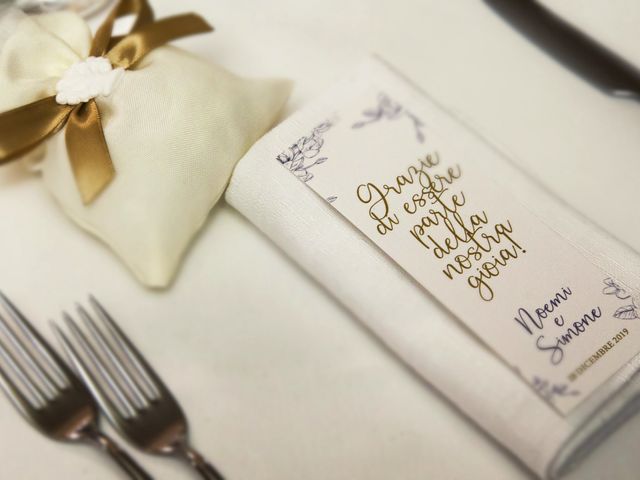 Grazie
di essere
parte
della
nostra
gioia!
Noemi
e
Simone
DICEMBRE 2019